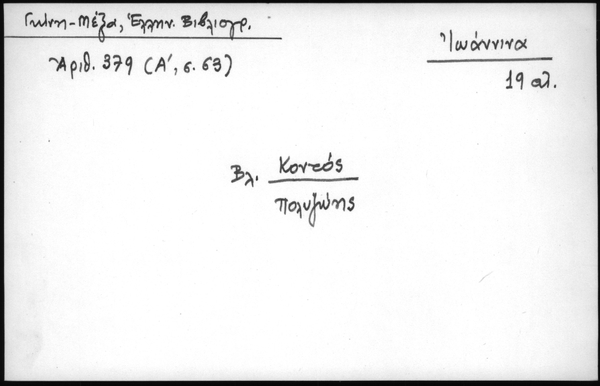 Γκίνη-Μέξα, Ἑλλην. Βιβλιογρ.
Ἀριθ. 379 (Α΄, σ. 63)
Ἰωάννινα
19 αἰ.
Βλ. Κοντός
Πολυζώης